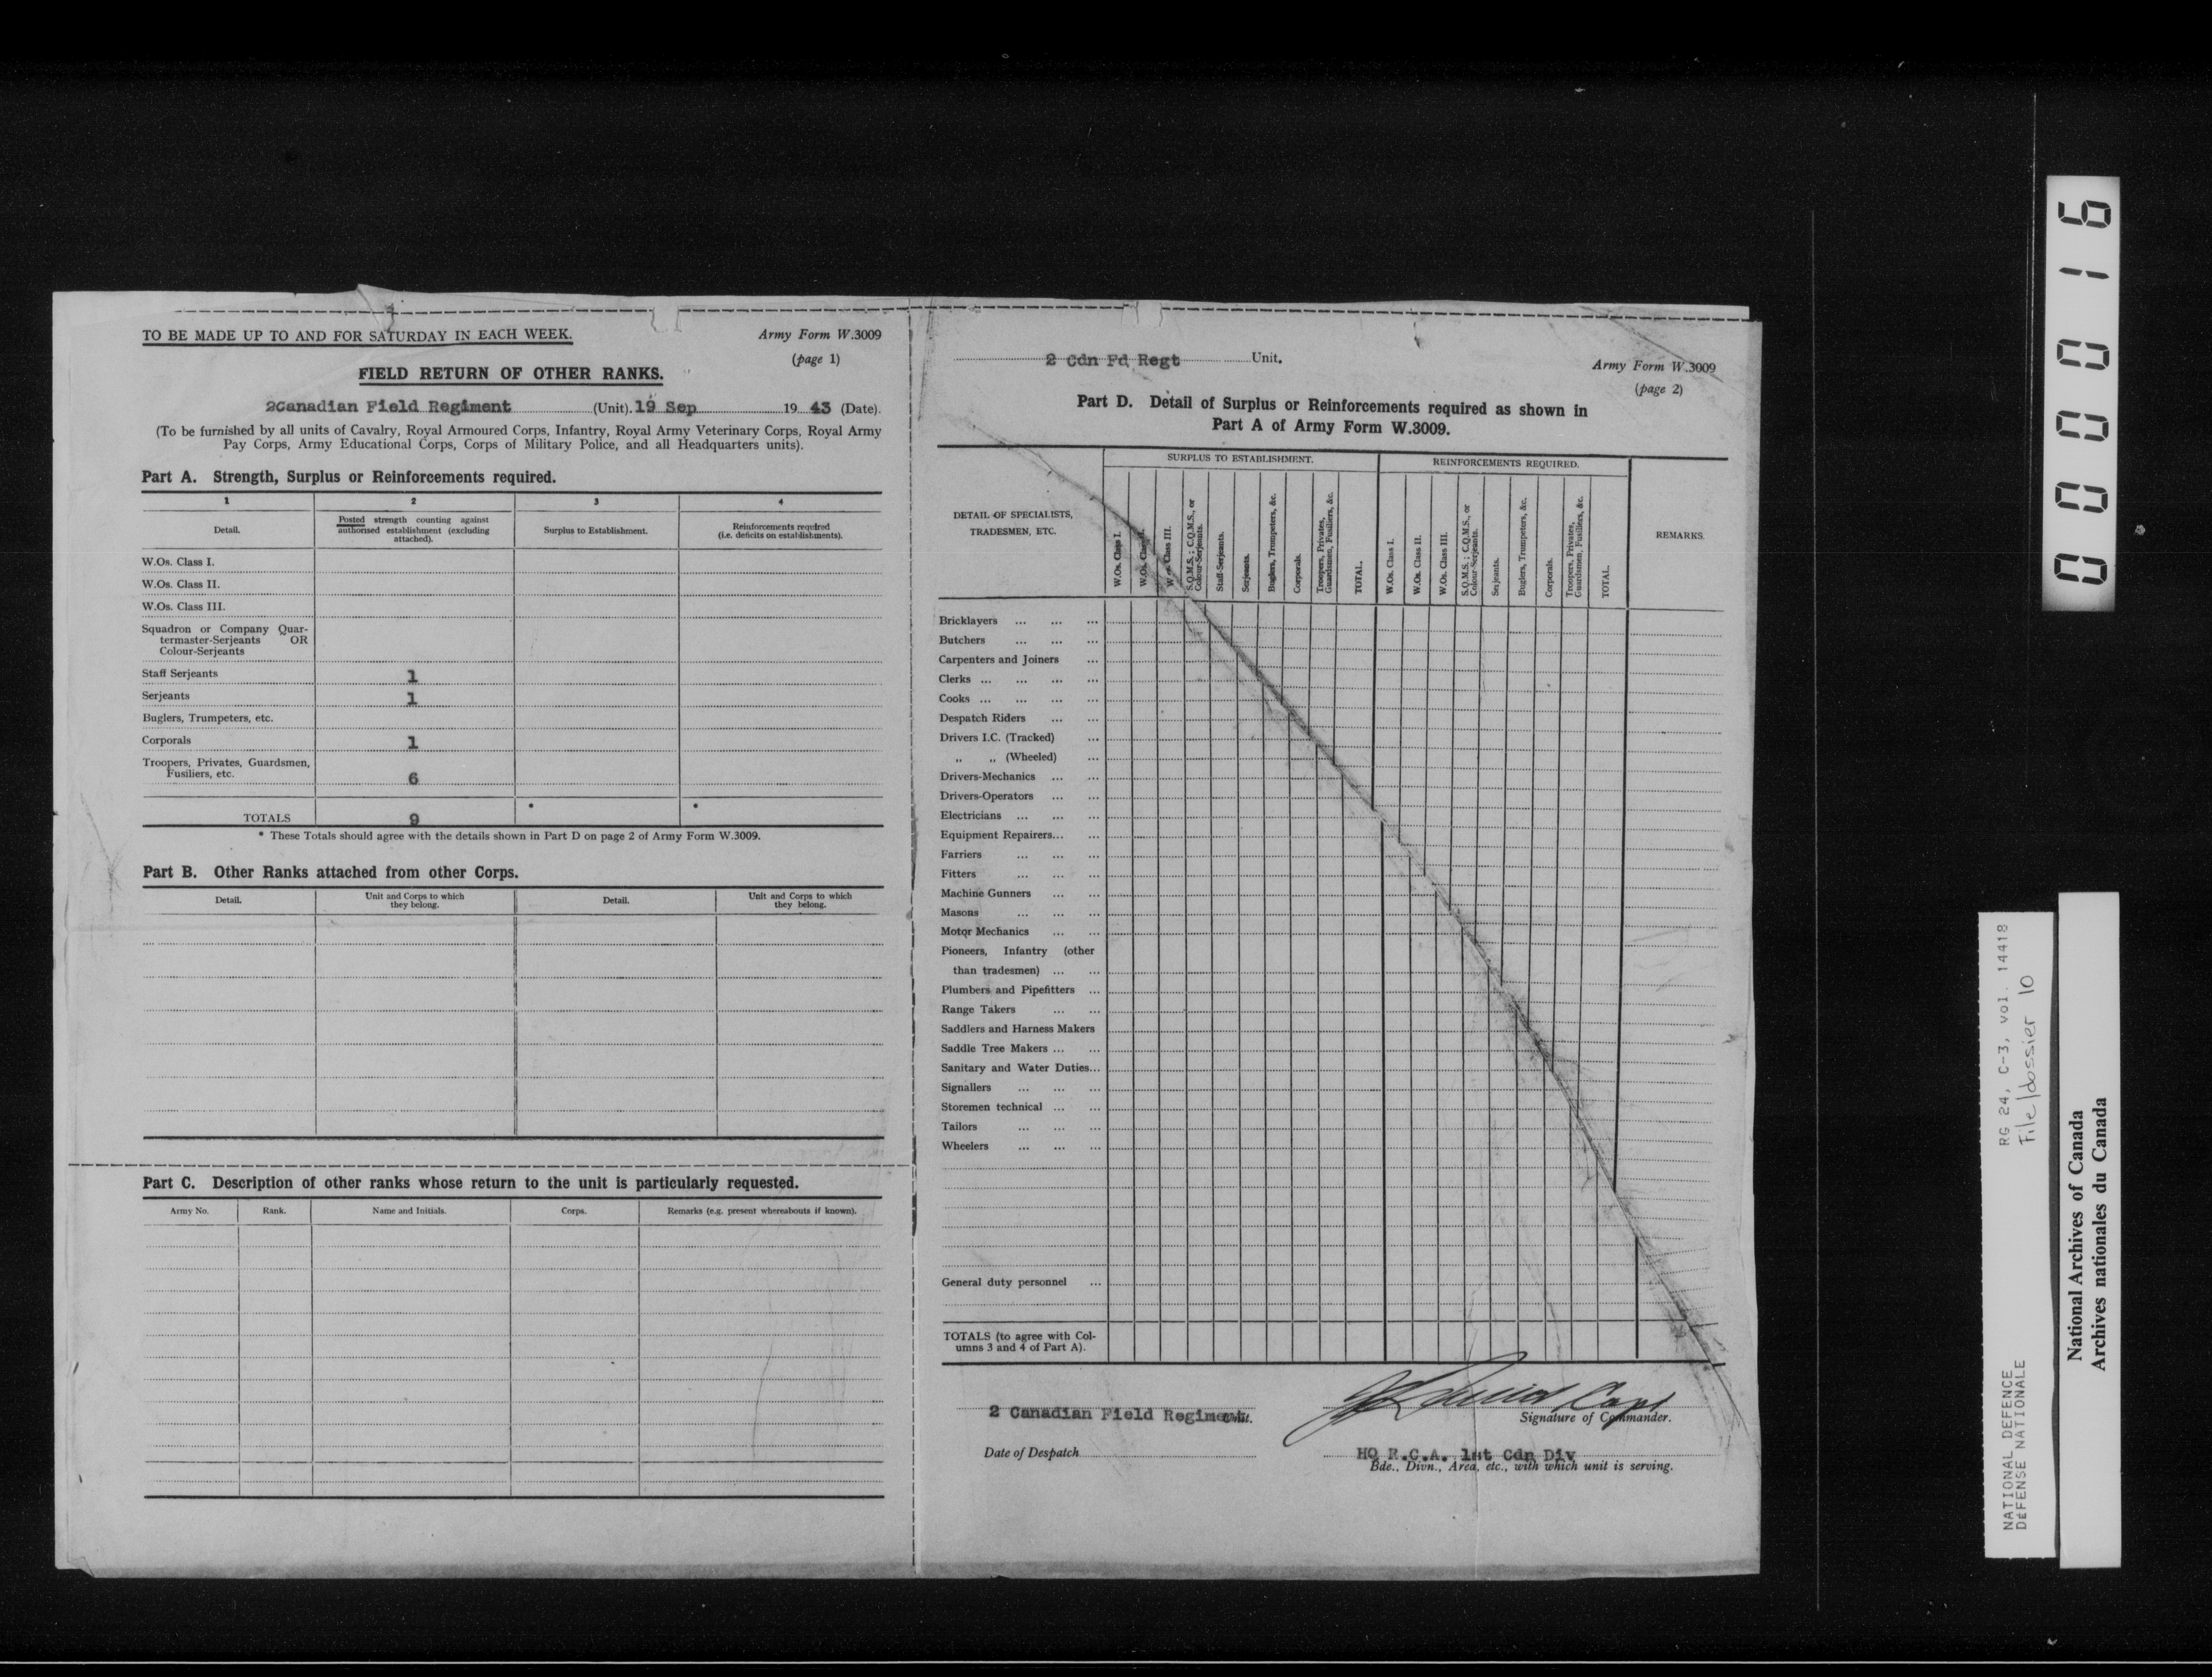 TO BE MADE UP TO AND FOR SATURDAY IN EACH WEEK.
Army Form W.3009
(page 1)
FIELD RETURN OF OTHER RANKS.
2Canadian Field Regiment (Unit). 19 Sep 19 43 (Date).
(To be furnished by all units of Cavalry, Royal Armoured Corps, Infantry, Royal Army Veterinary Corps, Royal Army
Pay Corps, Army Educational Corps, Corps of Military Police, and all Headquarters units).
Part A. Strength, Surplus or Reinforcements required.
1 2 3 4
Detail.
Posted strength counting against
authorised establishment (excluding
attached).
Surplus to Establishment.
Reinforcements required
(i.e. deficits on establishments).
W.Os. Class I.
W.Os. Class II.
W.Os. Class III.
Squadron or Company Quar-
termaster-Serjeants OR
Colour-Serjeants
Staff Serjeants 1
Serjeants 1
Buglers, Trumpeters, etc.
Corporals 1
Troopers, Privates, Guardsmen,
Fusiliers, etc. 6
* *
TOTALS 9
* These Totals should agree with the details shown in Part D on page 2 of Army Form W.3009.
Part B. Other Ranks attached from other Corps.
Detail.
Unit and Corps to which
they belong.
Detail.
Unit and Corps to which
they belong.
Part C. Description of other ranks whose return to the unit is particularly requested.
Army No. Rank. Name and Initials. Corps. Remarks (e.g. present whereabouts if known).
2 Cdn Fd Regt Unit.
Army Form W.3009
(page 2)
Part D. Detail of Surplus or Reinforcements required as shown in
Part A of Army Form W.3009.
DETAIL OF SPECIALISTS,
TRADESMEN, ETC.
SURPLUS TO ESTABLISHMENT.
W.Os. Class I.
W.Os. Class
W.Os. Class III.
S.Q.M.S.; C.Q.M.S., or
Colour-Serjeants.
Staff-Serjeants.
Serjeants.
Buglers, Trumpeters, &c.
Corporals.
Troopers, Privates,
Guardsmen, Fusiliers, &c.
TOTAL.
REINFORCEMENTS REQUIRED.
W.Os. Class I.
W.Os. Class II.
W.Os. Class III.
S.Q.M.S.; C.Q.M.S., or
Colour-Serjeants.
Serjeants.
Buglers, Trumpeters, &c.
Corporals.
Troopers, Privates,
Guardsmen, Fusiliers, &c.
TOTAL.
REMARKS.
Bricklayers ... ... ...
Butchers ... ... ...
Carpenters and Joiners ...
Clerks ... ... ... ...
Cooks ... ... ... ...
Despatch Riders ... ...
Drivers I.C. (Tracked) ...
,, ,, (Wheeled) ...
Drivers-Mechanics ... ...
Drivers-Operators ... ...
Electricians ... ... ...
Equipment Repairers... ...
Farriers ... ... ...
Fitters ... ... ...
Machine Gunners ... ...
Masons ... ... ...
Motor Mechanics ... ...
Pioneers, Infantry (other
than tradesmen) ... ...
Plumbers and Pipefitters ...
Range Takers ... ...
Saddlers and Harness Makers
Saddle Tree Makers ... ...
Sanitary and Water Duties...
Signallers ... ... ...
Storemen technical ... ...
Tailors ... ... ...
Wheelers ... ... ...
General duty personnel ...
TOTALS (to agree with Col-
umns 3 and 4 of Part A).
2 Canadian Field Regiment Unit.
Capt
Signature of Commander.
Date of Despatch
HQ R.C.A. 1st Cdn Div
Bde., Divn., Area, etc., with which unit is serving.
000016
NATIONAL DEFENCE RG 24, C-3, vol. 14418
DÉFENSE NATIONALE File/dossier 10
National Archives of Canada
Archives nationales du Canada